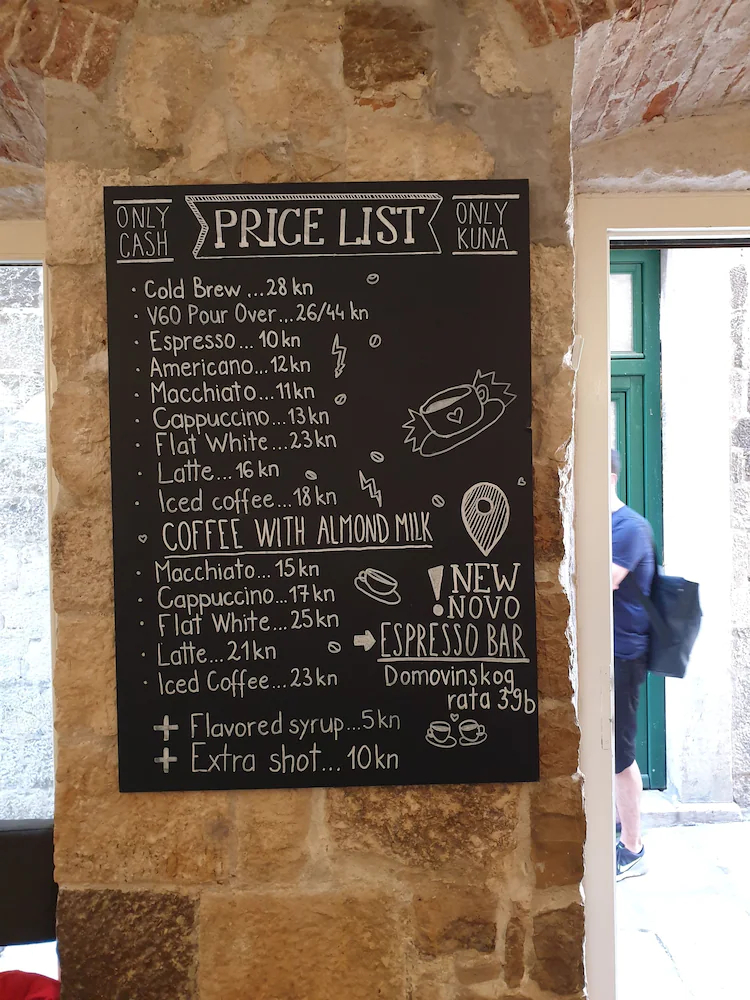 ONLY
CASH
PRICE LIST
ONLY
KUNA
· Cold Brew...28 kn
· V60 Pour Over...26/44 kn
· Espresso...10kn
· Americano...12kn
· Macchiato...11kn
· Cappuccino...13kn
· Flat White...23kn
· Latte...16 kn
· Iced coffee...18kn
COFFEE WITH ALMOND MILK
· Macchiato...15kn
· Cappuccino...17kn
· Flat White...25kn
· Latte...21kn
· Iced Coffee...23kn
+ Flavored syrup...5kn
+ Extra shot...10kn
! NEW
NOVO
ESPRESSO BAR
Domovinskog
rata 39b